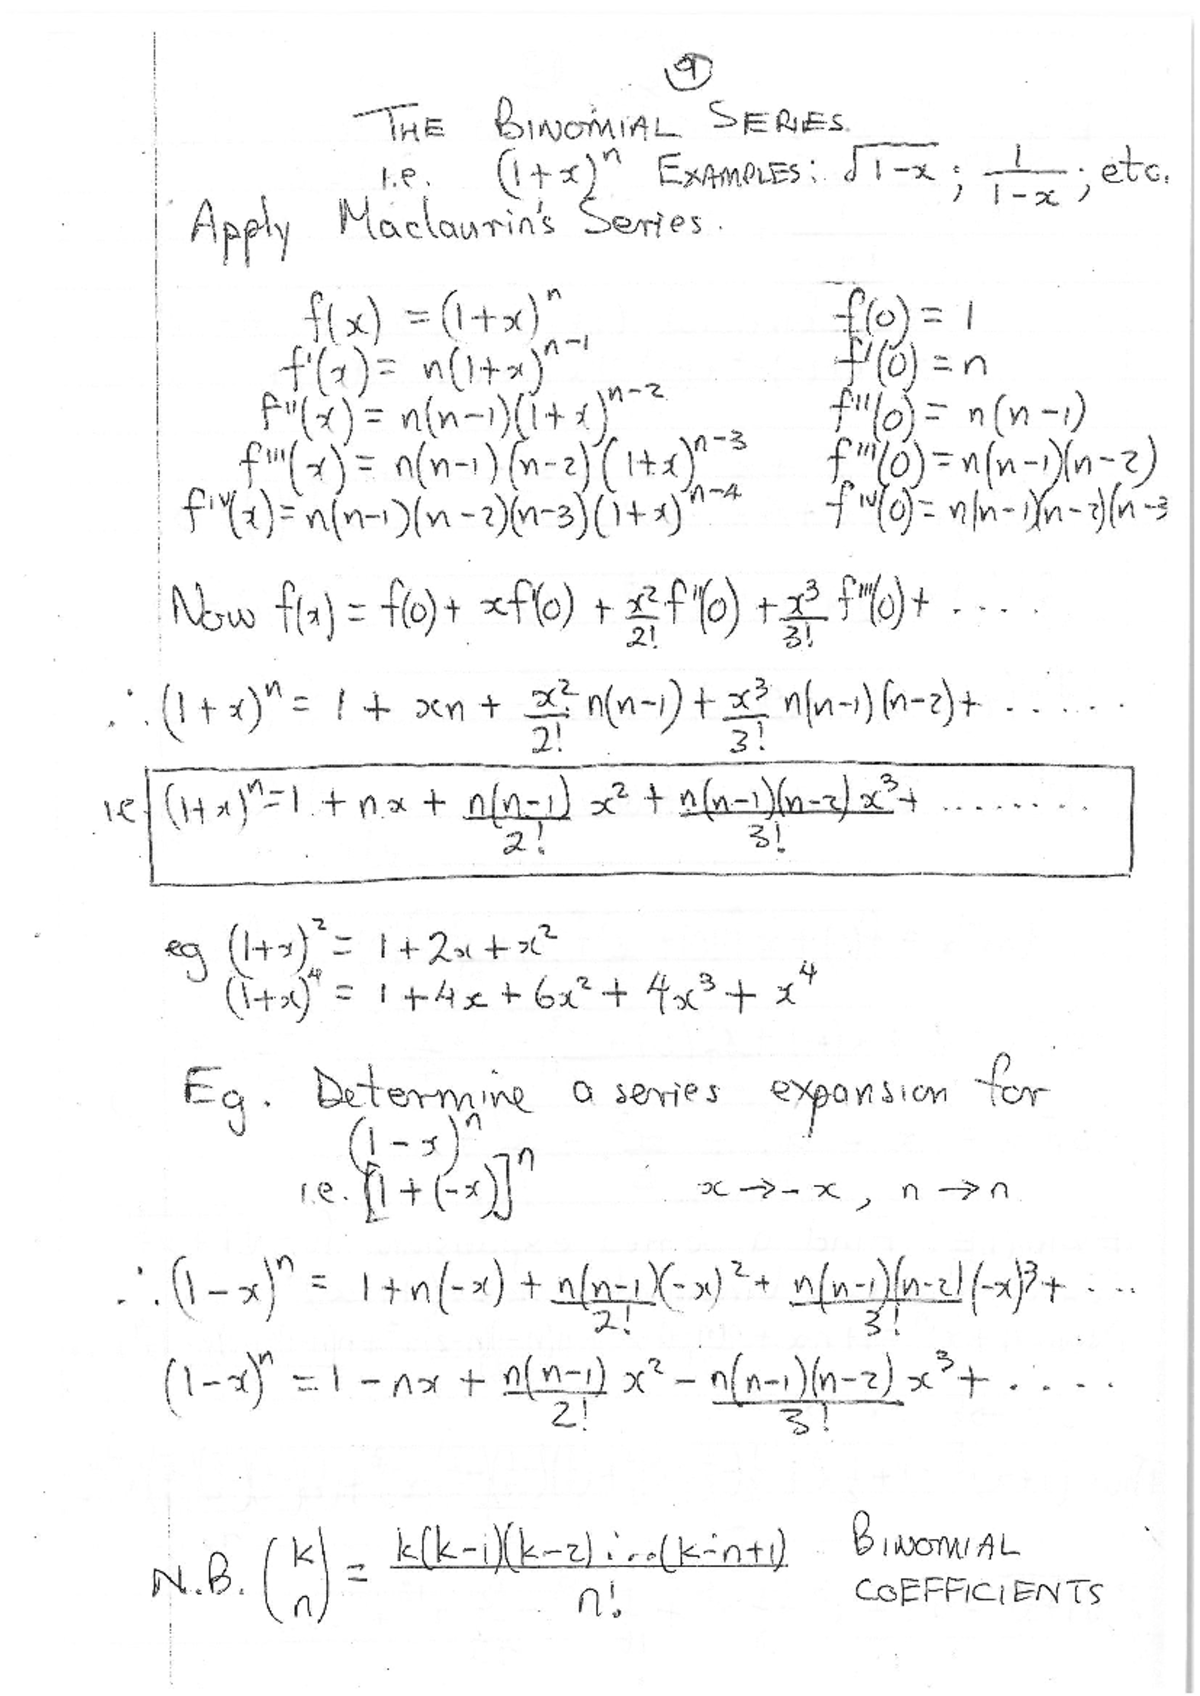 9
THE BINOMIAL SERIES.
i.e. (1+x)ⁿ EXAMPLES: √1-x ; 1/(1-x) ; etc.
Apply Maclaurin's Series.
f(x) = (1+x)ⁿ f(0) = 1
f'(x) = n(1+x)ⁿ⁻¹ f'(0) = n
f''(x) = n(n-1)(1+x)ⁿ⁻² f''(0) = n(n-1)
f'''(x) = n(n-1)(n-2)(1+x)ⁿ⁻³ f'''(0) = n(n-1)(n-2)
fⁱᵛ(x) = n(n-1)(n-2)(n-3)(1+x)ⁿ⁻⁴ fⁱᵛ(0) = n(n-1)(n-2)(n-3
Now f(x) = f(0) + xf'(0) + x²/2! f''(0) + x³/3! f'''(0) + ....
∴ (1+x)ⁿ = 1 + xn + x²/2! n(n-1) + x³/3! n(n-1)(n-2) + ......
i.e. (1+x)ⁿ = 1 + nx + n(n-1)/2! x² + n(n-1)(n-2)x³/3! + ........
eg (1+x)² = 1 + 2x + x²
(1+x)⁴ = 1 + 4x + 6x² + 4x³ + x⁴
Eg. Determine a series expansion for
(1-x)ⁿ
i.e. [1+(-x)]ⁿ x → -x, n → n
∴ (1-x)ⁿ = 1 + n(-x) + n(n-1)/2! (-x)² + n(n-1)(n-2)/3! (-x)³ + ...
(1-x)ⁿ = 1 - nx + n(n-1)/2! x² - n(n-1)(n-2)/3! x³ + .....
N.B. (k n) = k(k-1)(k-2)....(k-n+1)/n! BINOMIAL
COEFFICIENTS